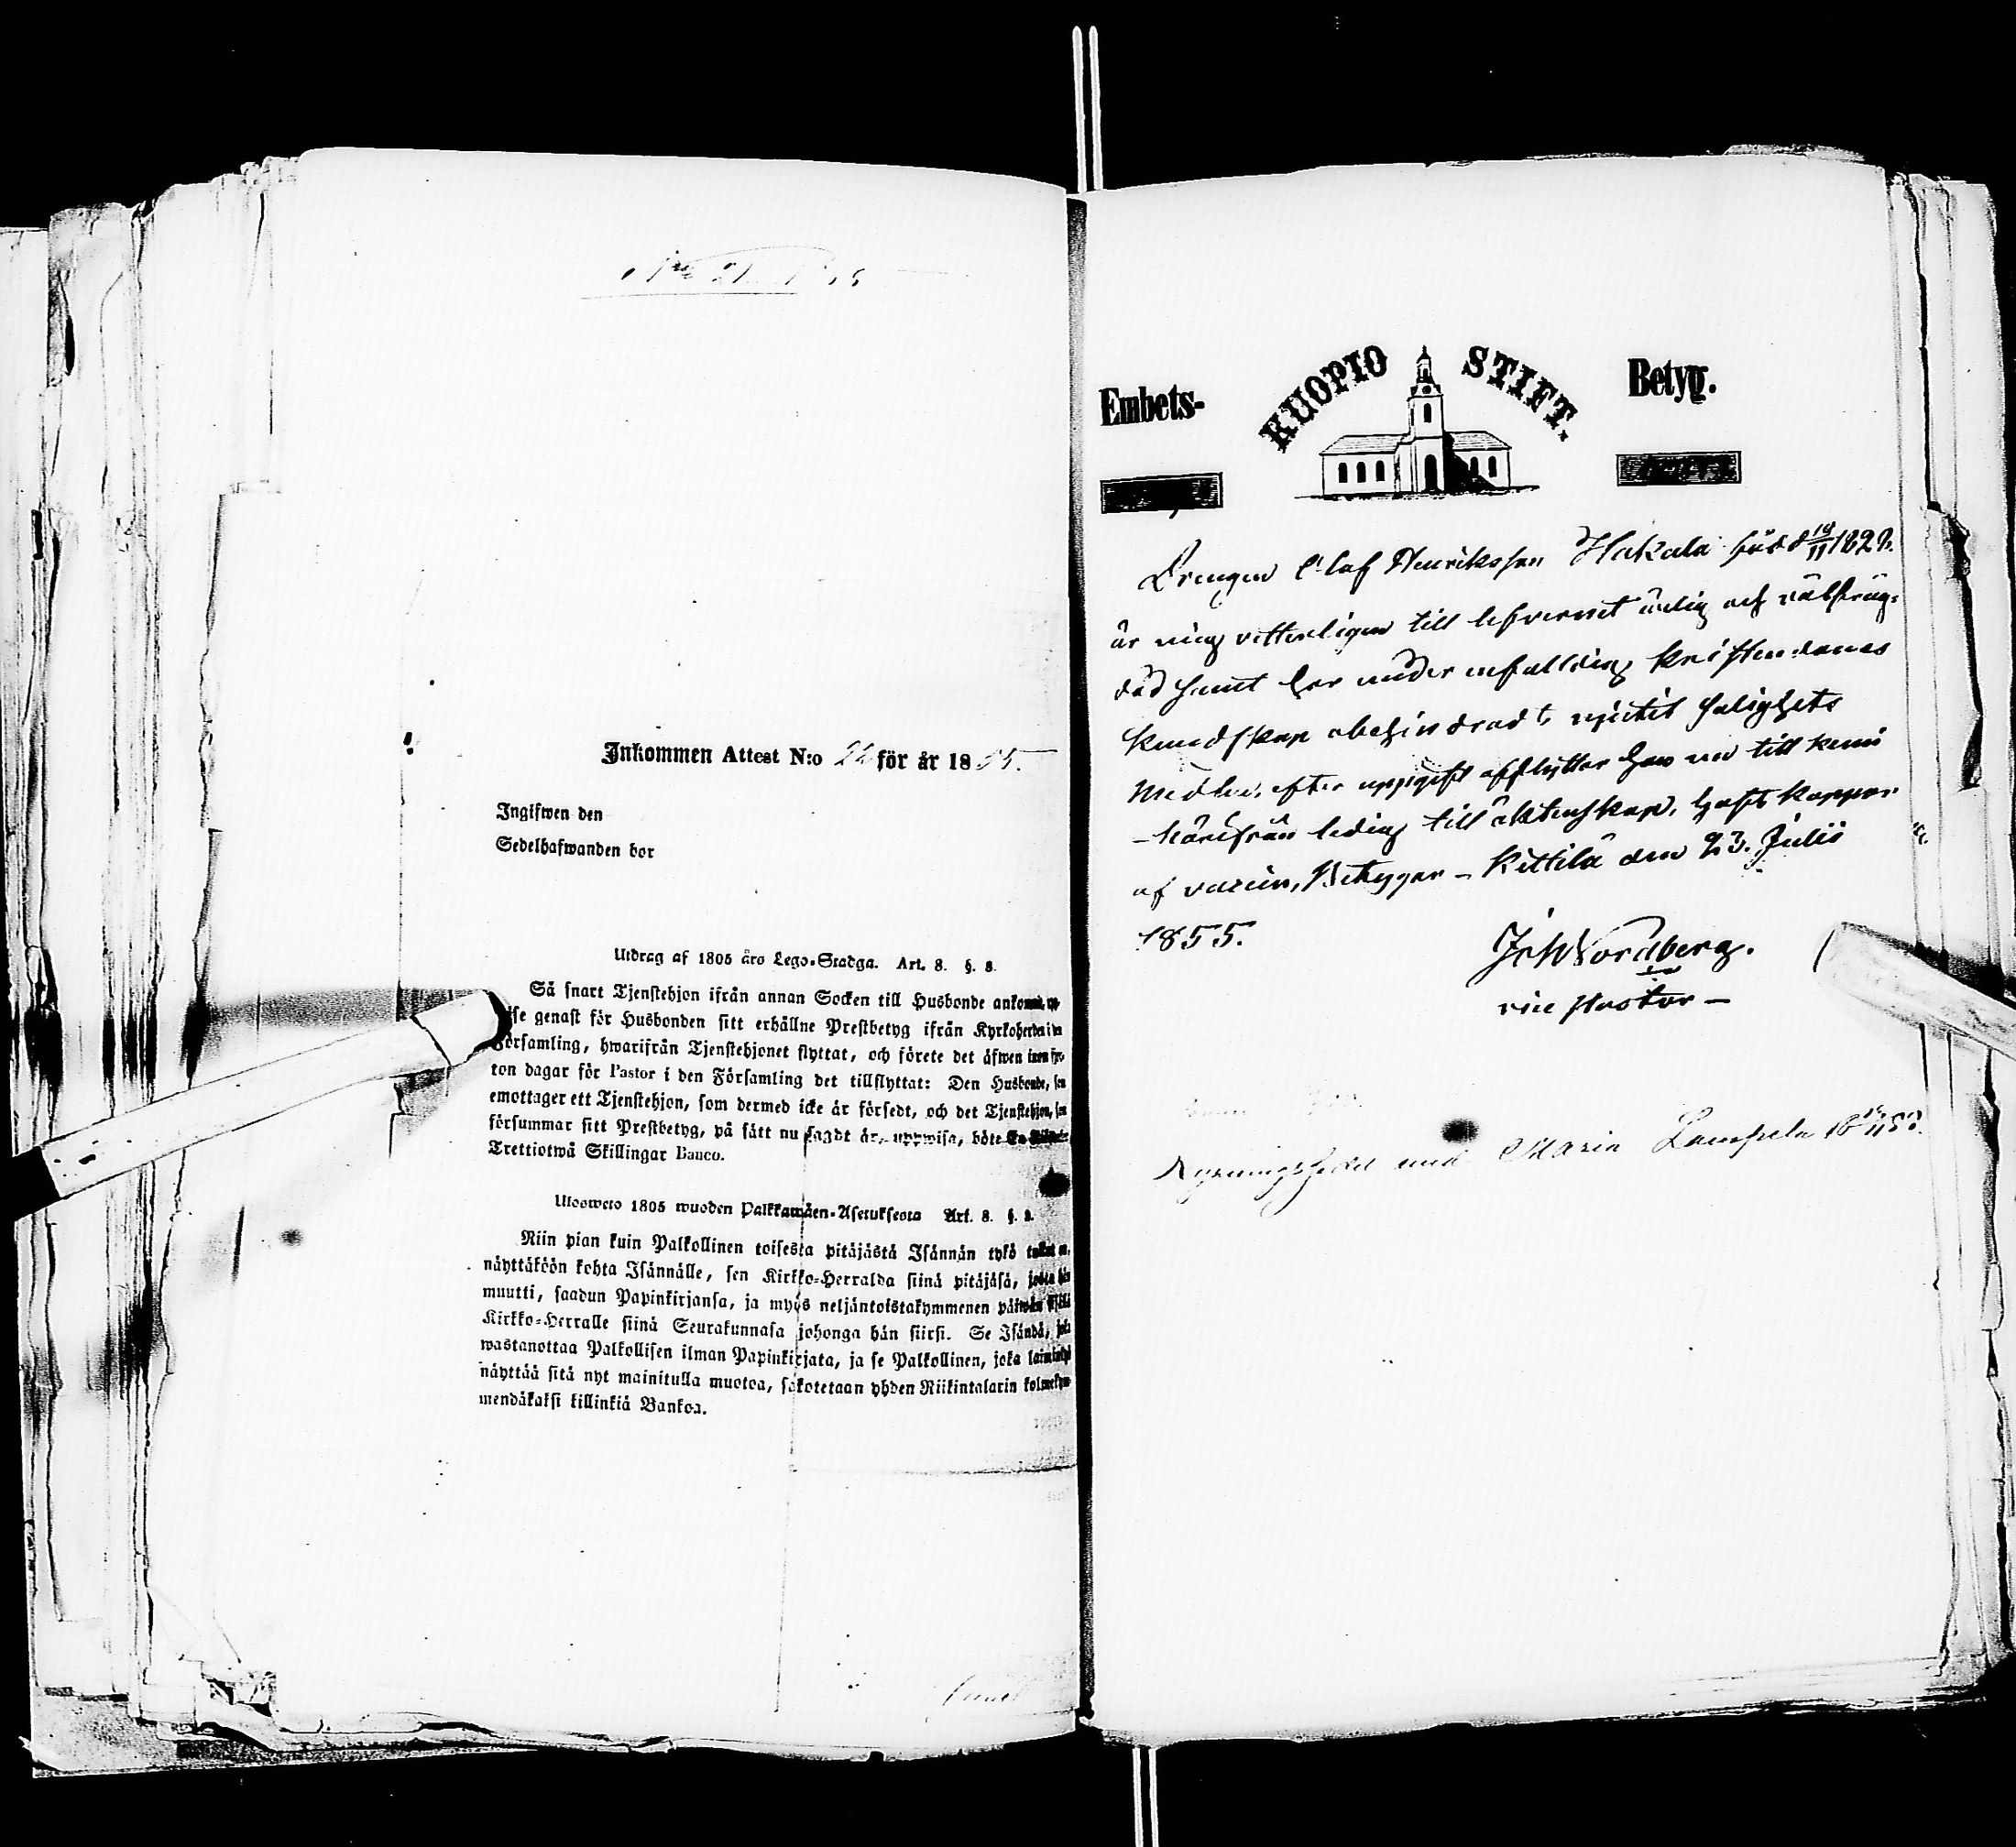 Inkommen Attest N:o 22 för år 1855.
Ingifwen den
Sedelhafwanden bor
Utdrag af 1805 års Lego-Stadga. Art. 8. §. 8.
Så snart Tjenstehjon ifrån annan Socken till Husbonde
genast för Husbonden sitt erhållne Prestbetyg ifrån
Församling, hwarifrån Tjenstehjonet flyttat, och förete det äfwen
ton dagar för Pastor i den Församling det tillflyttat: Den Husbonde,
emottager ett Tjenstehjon, som dermed icke är försedt, och det Tjenstehjon,
försummar sitt Prestbetyg, på sätt nu sagdt är, uppwisa, böte
Trettiotwå Skillingar Banco.
Ulosweto 1805 wuoden Palkkawäen-Asetuksesta Art. 8. §.
Niin pian kuin Palkollinen toisesta pitäjästä Isännän tykö
näyttäköön kohta Isännälle, sen Kirkko-Herralda siinä pitäjäsä,
muutti, saadun Papinkirjansa, ja myös neljäntoistakymmenen
Kirkko-Herralle siinä Seurakunnasa johonga hän siirsi. Se Isändä,
wastanottaa Palkollisen ilman Papinkirjata, ja se Palkollinen, joka
näyttää sitä nyt mainitulla muotoa, sakotetaan yhden Riikintalarin
mendäkaksi killinkiä Bankoa.
Embets- KUOPIO STIFT. Betyg.
Drengen Olof Henriksson Hakala född 19/11 182
är mig vetterligen till lefvernet ärlig och välfräg-
dad samt har under enfalldig kristendoms
kundskap obehindradt njutit salighets
medlen, efter uppgift afflyttar han nu till Kemi
- härifrån ledig till äktenskap, haft koppor
af vaccin, Betygar - Kittilä den 23. Julii
1855.
Nordberg.
vice Pastor -
Lysningssedel med Maria Lampela